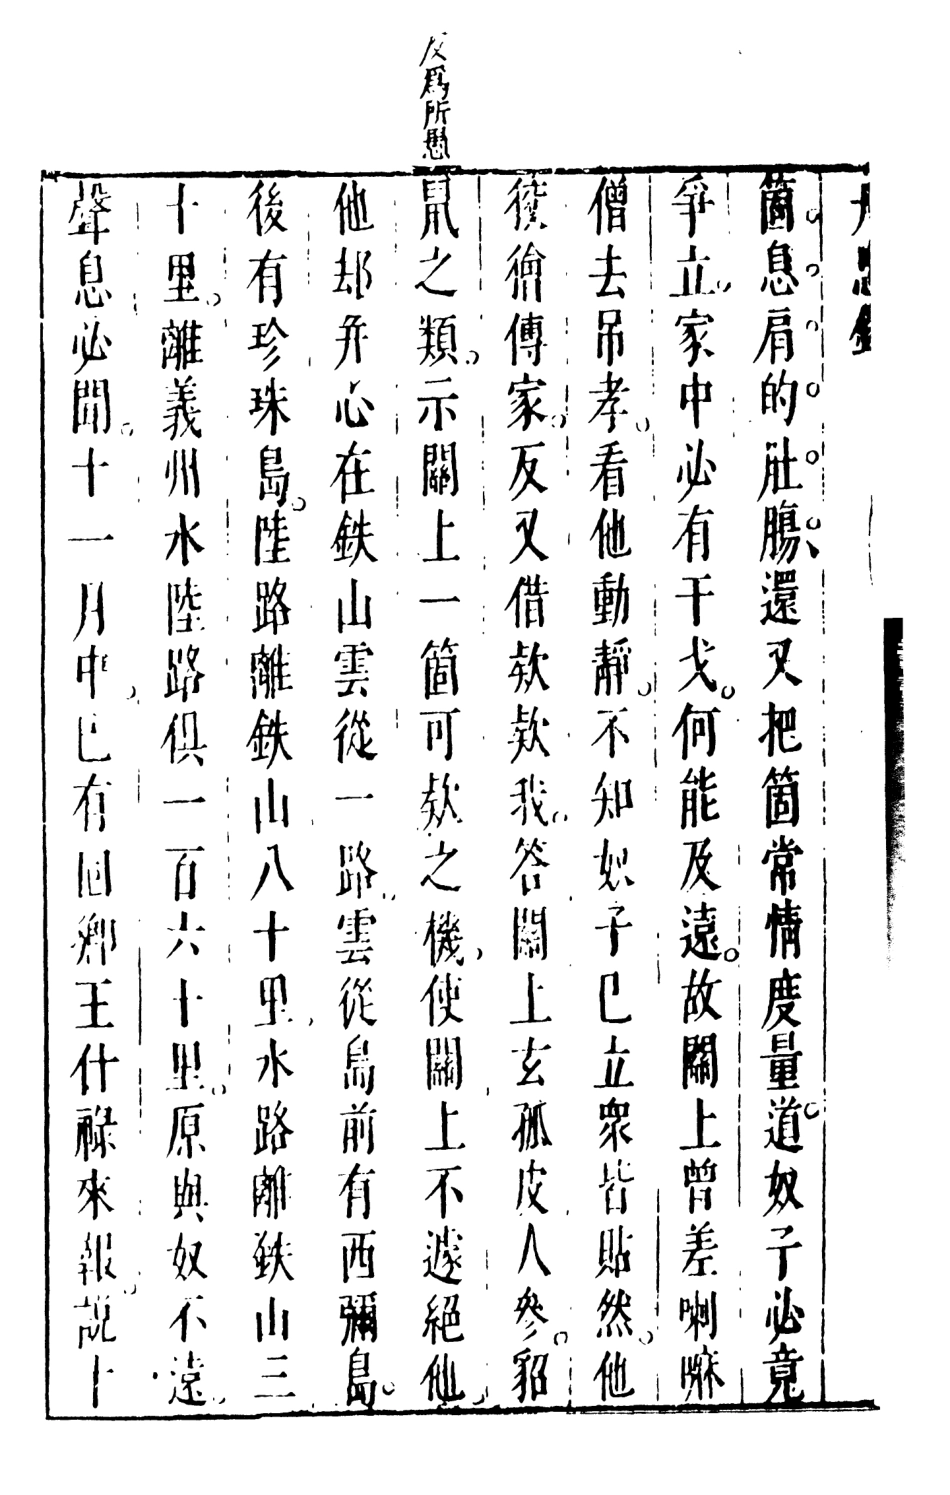 反爲所愚
箇息肩的肚膓還又把箇常情度量道奴子必竟
爭立家中必有干戈何能及遠故關上曾差喇嘛
僧去吊孝看他動靜不知奴子已立衆皆貼然他
後傳家反又借欵欵我答關上玄狐皮人參貂
鼠之類示關上一箇可欵之機使關上不遽絕他
他却弁心在鉄山雲從一路雲從島前有西彌島
後有珍珠島陸路離鉄山八十里水路離鉄山三
十里離義州水陸路俱一百六十里原與奴不遠
聲息必聞十一月中已有回鄉王什祿來報說十